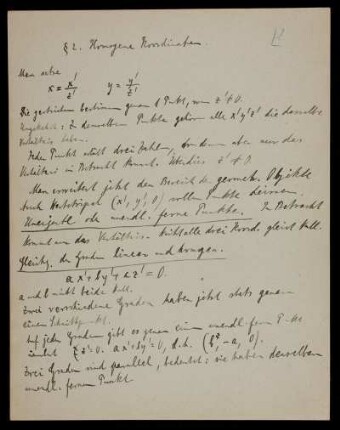 § 2. Homogene Koordinaten.
Man setze
x = x'/z' y = y'/z'
Sie bestimmen genau 1 Punkt, wenn z' ≠ 0.
Umgekehrt: Zu demselben Punkte gehören alle x' y' z' die dasselbe
Verhältnis haben.
Jeder Punkt erhält drei Zahlen, von denen aber nur das
Verhältnis in Betracht kommt. Überdies z' ≠ 0.
Man erweitert jetzt den Bereich der geometr. Objekte
durch (x', y', 0) sollen Punkte heissen.
Uneigentl. oder unendl. ferne Punkte. In Betracht
kommt nur das Verhältnis. Nicht alle drei Koord. gleich Null.
Gleichg. der Geraden linear und homogen.
a x' + b y' + c z' = 0.
a und b nicht beide Null.
Zwei verschiedene Geraden haben jetzt stets genau
einen Schnittpunkt.
Auf jeder Geraden gibt es genau einen unendl. fern. Pkt.
z' = 0. a x' + b y' = 0, d.h. (b, -a, 0).
Zwei Geraden sind parallel, bedeutet: sie haben denselben
unendl. fernen Punkt.